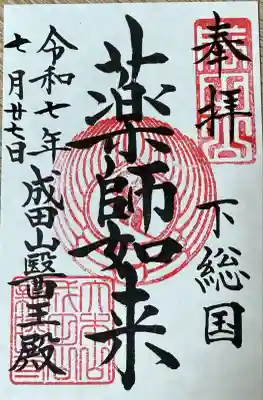 奉拝
下総国
薬師如来
成田山醫王殿
令和七年
七月廿七日